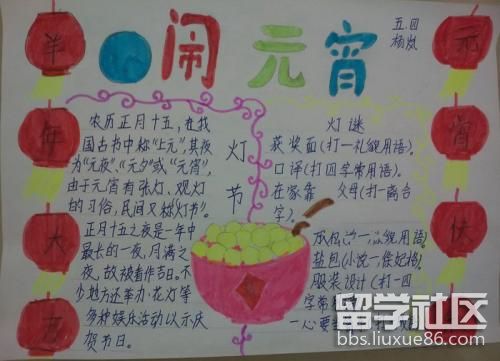 闹元宵
五.四
杨岚
羊
年
大
吉
元
宵
快
农历正月十五,在我
国古书中称“上元”,其夜
为“元夜”、“元夕”或“元宵”,
由于元宵有张灯、观灯
的习俗,民间又称“灯节”。
正月十五之夜是一年中
最长的一夜,月满之
夜,故被看作吉日。不
少地方还举办花灯等
多种娱乐活动以示庆
贺节日。
灯
节
灯谜
获奖面(打一礼貌用语)。
口译(打四字常用语)。
在家靠 父母(打一离合
字)。
盐包(小说一条妃格)。
服装设计(打一四
字常
一心要
留学社区
bbs.liuxue86.com